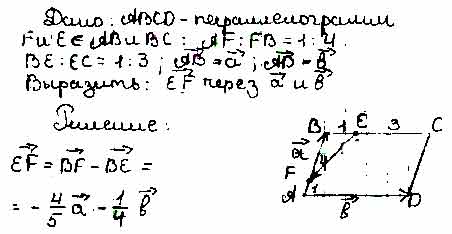 Дано: ABCD - параллелограмм
F и E ∈ AB и BC : AF : FB = 1 : 4.
BE : EC = 1 : 3 ; AB→ = a→ ; AD→ = b→
Выразить: EF→ через a→ и b→
Решение:
EF→ = BF→ - BE→ =
= - 4/5 a→ - 1/4 b→
B 1 E 3 C
a→ 4
F
A 1 b→ D